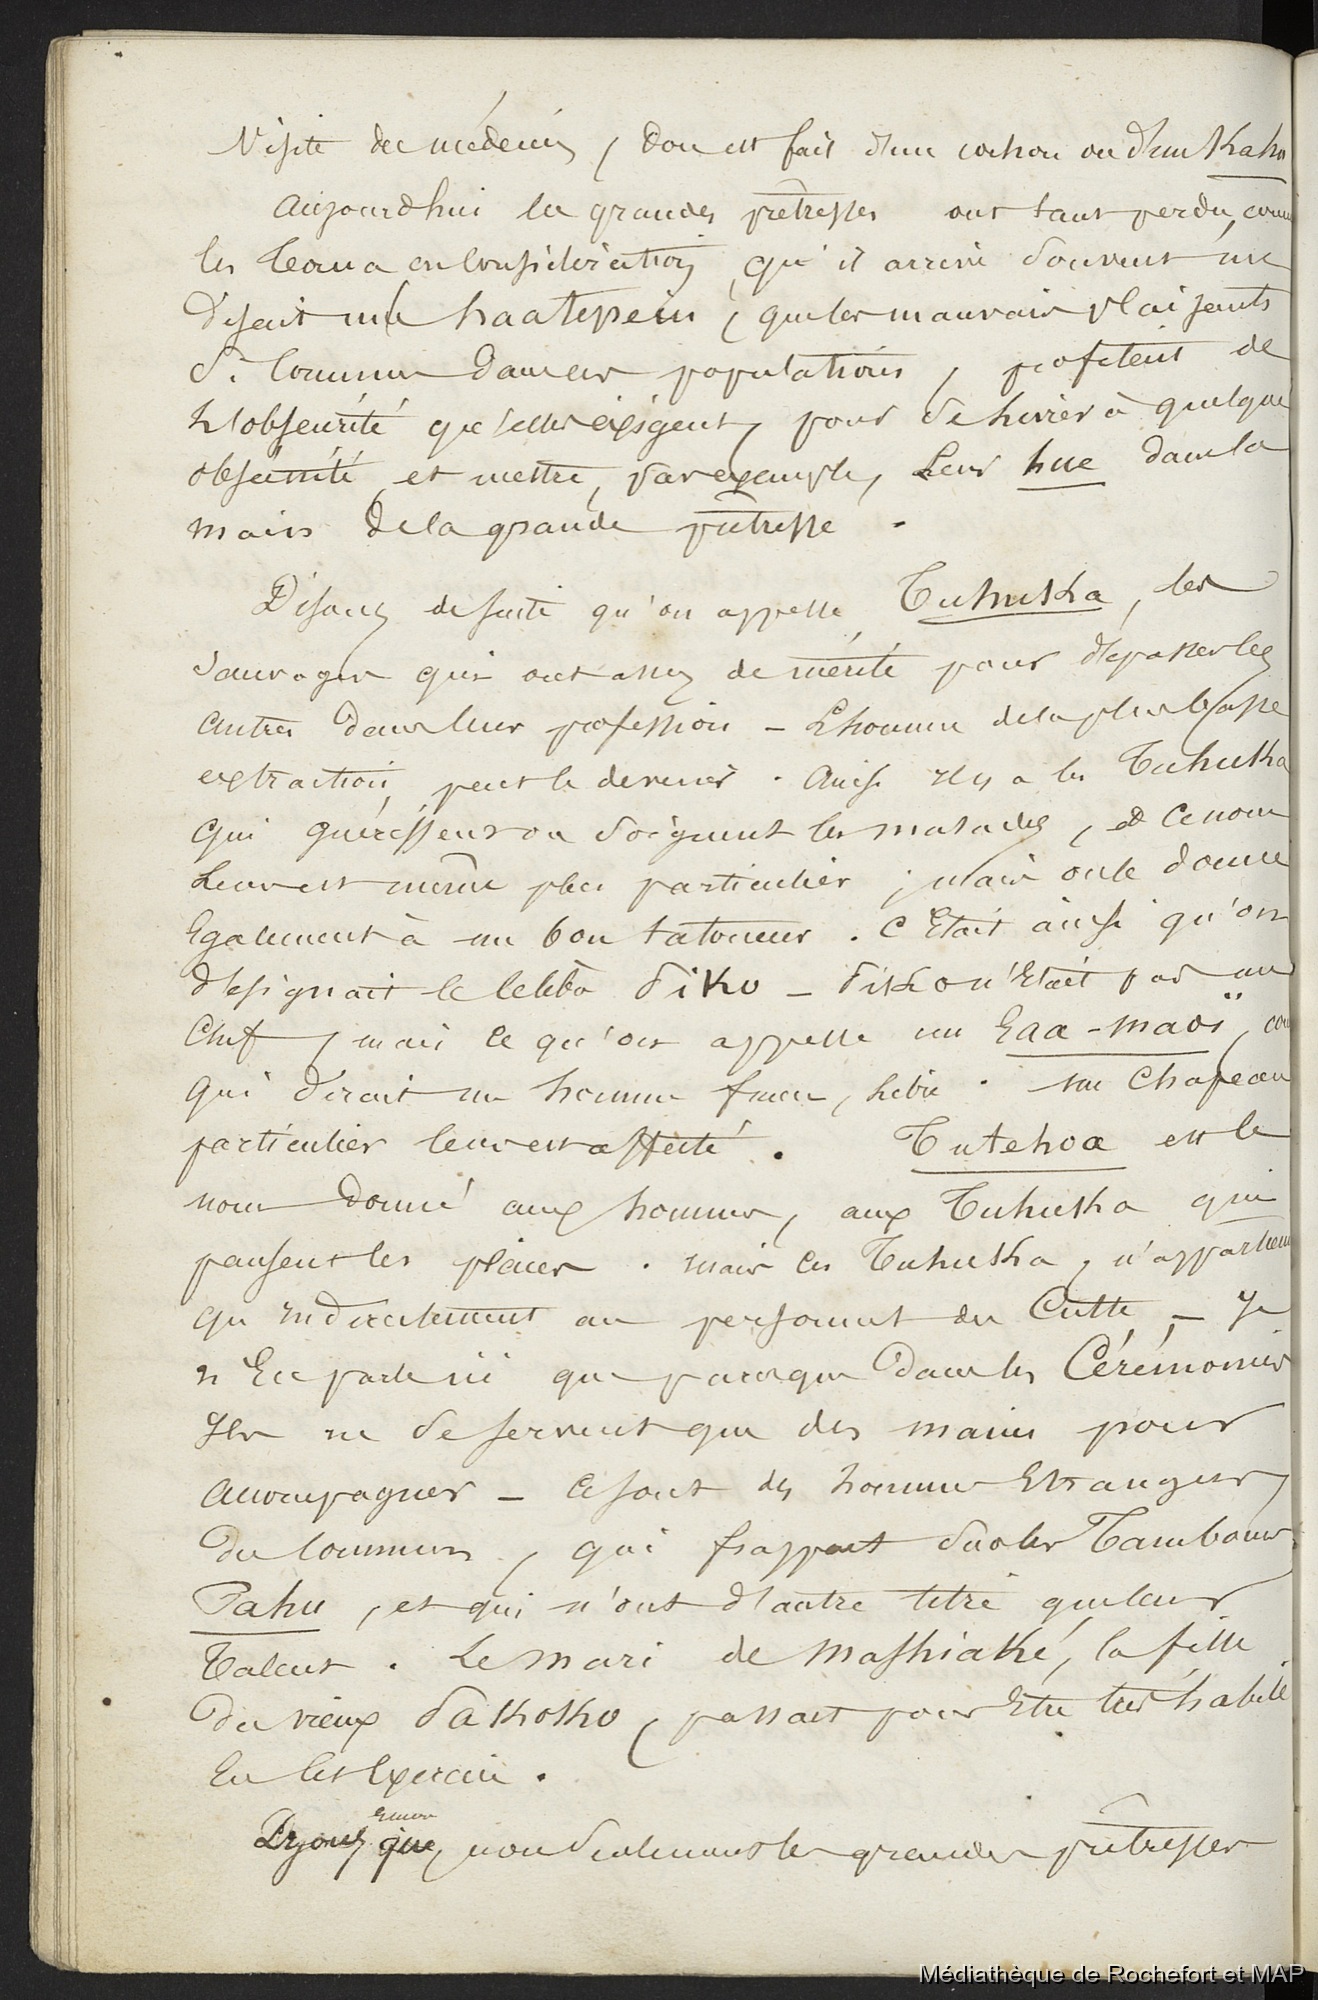 Visite de médecin, don est fait d'un cochon ou d'un Kaha
Aujourdhui les grandes prêtresses ont tant perdu, comme
les Toaua en Considération, qu'il arrive souvent me
disait un haatepeiu, que les mauvais plaisants
si communs dans ces populations, profitent de
l'obscurité qu'elles exigent, pour se livrer à quelque
obscénité et mettre, par exemple, Leur hue dans la
main de la grande prêtresse.
Disons de suite qu'on appelle Tuhuka, les
sauvages qui ont assez de mérite pour dépasser les
autres dans leur profession – L'homme de la plus basse
extraction, peut le devenir. Ainsi il y a les Tuhuka
qui guérissent ou soignent les malades, et ce nom
Leur est même plus particulier; mais on le donne
Également à un bon tatoueur. C'Était ainsi qu'on
désignait le célèbre Siko – Siko n'Était pas un
Chef, mais ce qu'on appelle un Eaa-maoï,
qui dirait un homme franc, libre. Un Chapeau
particulier leur est affecté. Tutehoa est le
nom donné aux hommes, aux Tuhuka qui
pansent les plaies. Mais ces Tuhuka, n'appartiennent
qu'indirectement au personnel du Culte, – Je
n'En parle ici que parce que dans les Cérémonies
Ils ne se servent que des mains pour
accompagner – Ce sont des hommes Etrangers,
du commun, qui frappent sur les Tambours
Pahu, et qui n'ont d'autre titre que leur
Talent. Le mari de Mashiaké, la fille
du vieux Sakoko, passait pour Etre très habile
En cet Exercice.
Encore
Disons que, non seulement les grandes prêtresses
Médiathèque de Rochefort et MAP